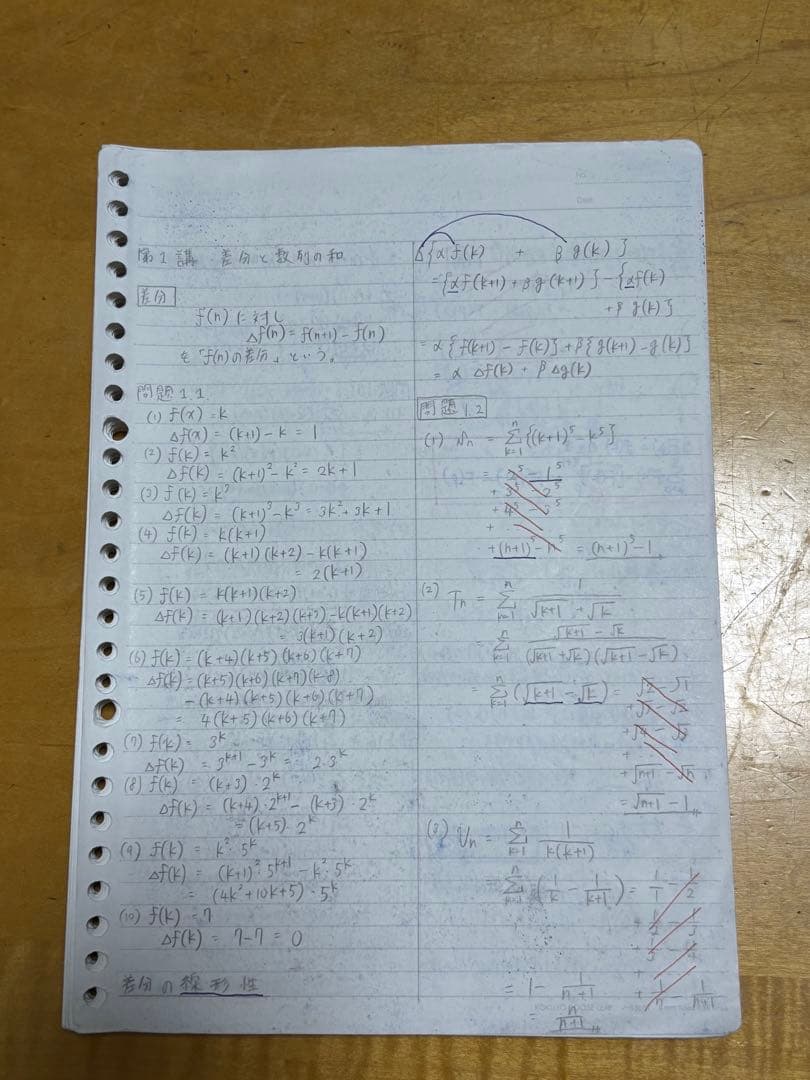 第1講 差分と数列の和
差分
f(n)に対し
Δf(n)=f(n+1)-f(n)
を「f(n)の差分」という。
問題1.1
(1) f(x)=k
Δf(x)=(k+1)-k=1
(2) f(k)=k²
Δf(k)=(k+1)²-k²=2k+1
(3) f(k)=k³
Δf(k)=(k+1)³-k³=3k²+3k+1
(4) f(k)=k(k+1)
Δf(k)=(k+1)(k+2)-k(k+1)
=2(k+1)
(5) f(k)=k(k+1)(k+2)
Δf(k)=(k+1)(k+2)(k+3)-k(k+1)(k+2)
=3(k+1)(k+2)
(6) f(k)=(k+4)(k+5)(k+6)(k+7)
Δf(k)=(k+5)(k+6)(k+7)(k+8)
-(k+4)(k+5)(k+6)(k+7)
=4(k+5)(k+6)(k+7)
(7) f(k)=3^k
Δf(k)=3^{k+1}-3^k=2·3^k
(8) f(k)=(k+3)·2^k
Δf(k)=(k+4)·2^{k+1}-(k+3)·2^k
=(k+5)·2^k
(9) f(k)=k²·5^k
Δf(k)=(k+1)²·5^{k+1}-k²·5^k
=(4k²+10k+5)·5^k
(10) f(k)=7
Δf(k)=7-7=0
差分の線形性
No.
Date
Δ{αf(k)+βg(k)}
={αf(k+1)+βg(k+1)}-{αf(k)
+βg(k)}
=α{f(k+1)-f(k)}+β{g(k+1)-g(k)}
=αΔf(k)+βΔg(k)
問題1.2
(1) Sn=∑_{k=1}^{n}{(k+1)⁵-k⁵}
=2⁵-1⁵
+3⁵-2⁵
+4⁵-3⁵
+
+(n+1)⁵-n⁵=(n+1)⁵-1
(2) Tn=∑_{k=1}^{n} 1/(√(k+1)+√k)
=∑_{k=1}^{n} (√(k+1)-√k)/((√(k+1)+√k)(√(k+1)-√k))
=∑_{k=1}^{n}(√(k+1)-√k)=√2-√1
+√3-√2
+√4-√3
+
+√(n+1)-√n
=√(n+1)-1
(3) Un=∑_{k=1}^{n} 1/(k(k+1))
=∑_{k=1}^{n}(1/k-1/(k+1))=1/1-1/2
+1/2-1/3
+1/3-1/4
+
+1/n-1/(n+1)
=1-1/(n+1)
=n/(n+1)